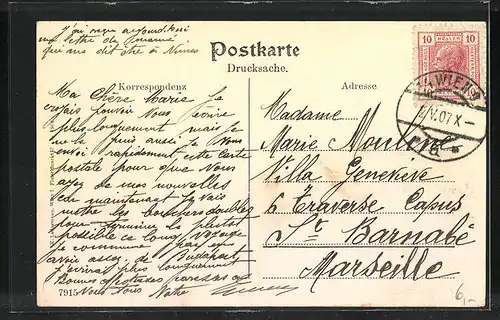 J'ai reçu aujourd'hui
une lettre de
qui me dit être à Nimes
Postkarte
Drucksache.
Korrespondenz
Adresse
10 HELLER 10
WIEN
V. 07. X
Ma Chère Marie. Je
croyais pouvoir Vous écrire
plus longuement mais je
ne le puis aussi je Vous
envoi rapidement cette carte
postale pour que Vous
ayez de mes nouvelles
car maintenant je vais
mettre les bouchées doubles
pour terminer le plus tôt
possible ce long voyage
je commence par en
avoir assez. de Budapest
j'écrirai plus longuement
Bonnes
Vous tous Votre
Madame
Marie
Villa Geneviève
6 Traverse Capus
St. Barnabé
Marseille
7915
6,-